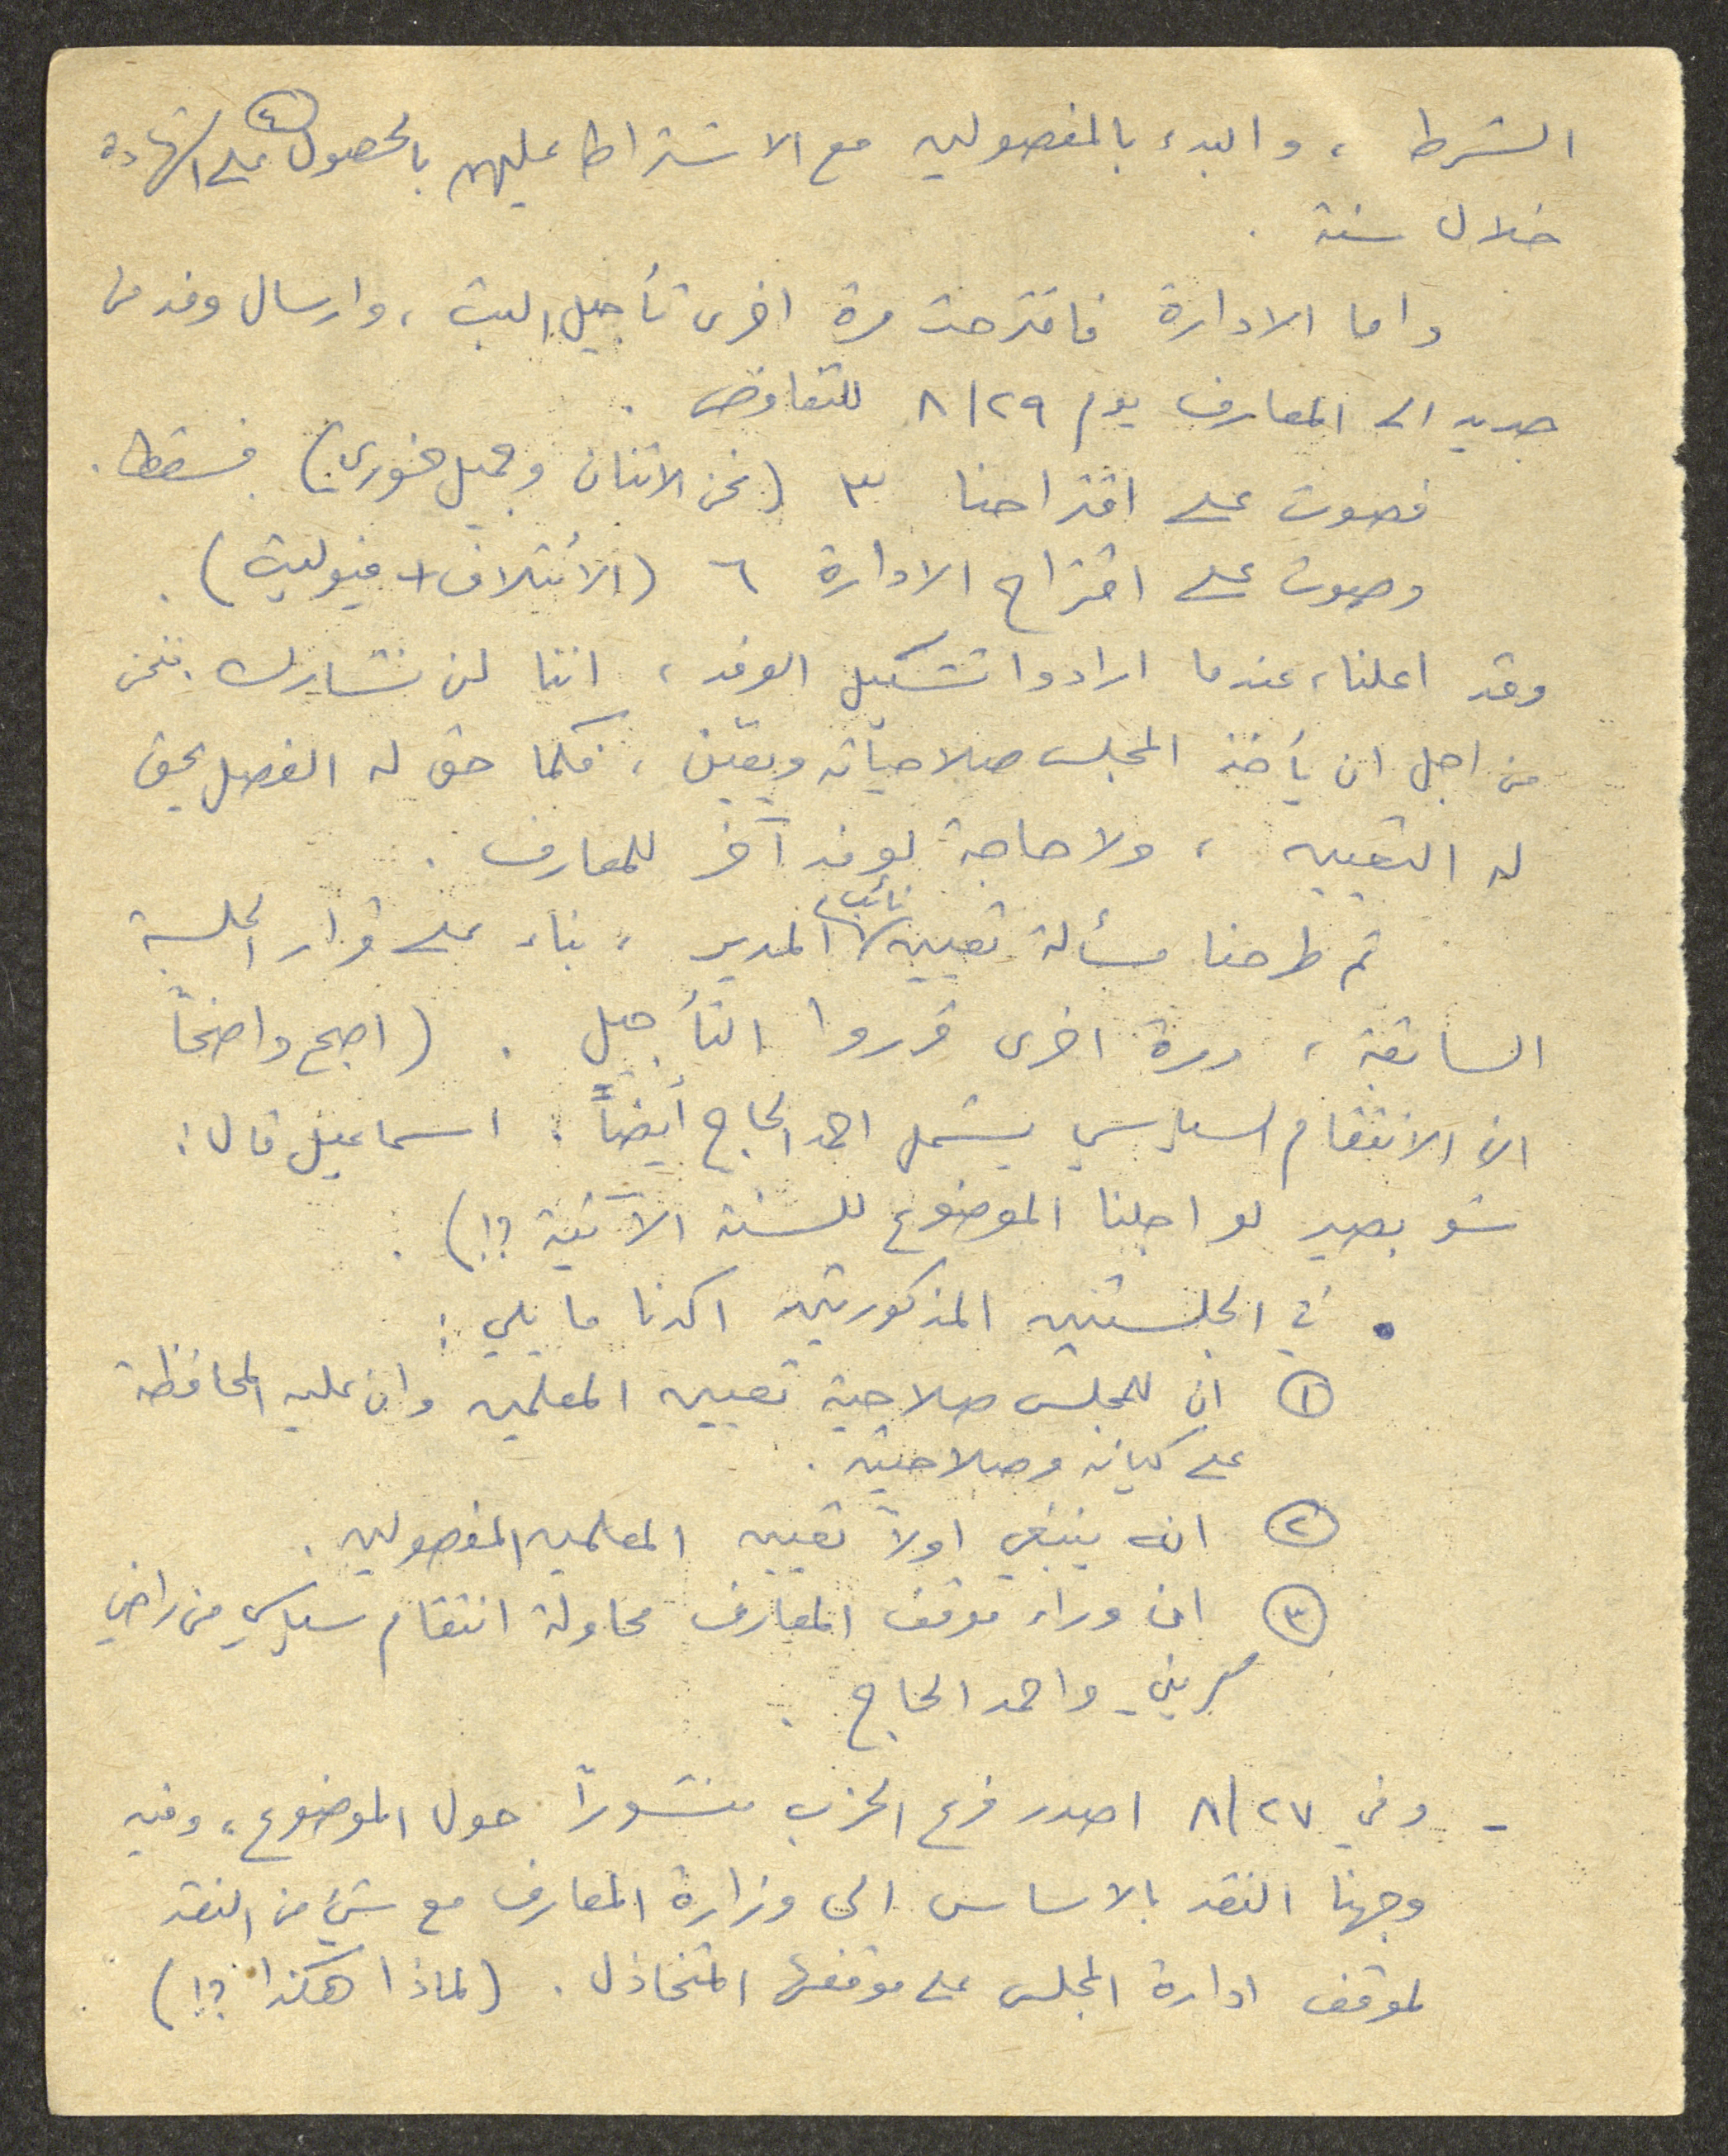 ٤
الشرط ، والبدء بالمفصولين مع الاشتراط عليهم بالحصول على الشهادة
خلال سنة .
واما الادارة فاقترحت مرة اخرى تأجيل البت ، وارسال وفد من
جديد الى المعارف يوم ٨/٢٩ للتفاوض .
فصوت على اقتراحنا ٣ (نحن الاثنان وجميل خوري) فسقط .
وصوت على اقتراح الادارة ٦ (الائتلاف + فيوليت) .
وقد اعلنا ، عندما ارادوا تشكيل الوفد ، اننا لن نشارك . فنحن
من اجل ان يأخذ المجلس صلاحياته ويعيّن ، فكما حق له الفصل يحق
له التعيين ، ولا حاجة لوفد آخر للمعارف .
ثم طرحنا مسألة تعيين نائب المدير ، بناء على قرار الجلسة
السابقة ، ومرة اخرى قرروا التأجيل . (اصبح واضحاً
ان الانتقام السياسي يشمل احمد الحاج أيضاً . اسماعيل قال :
شو بصير لو اجلنا الموضوع للسنة الآتية ؟!) .
• في الجلستين المذكورتين اكدنا ما يلي :
١ ان للمجلس صلاحية تعيين المعلمين وان عليه المحافظة
على كيانه وصلاحيته .
٢ انه ينبغي اولاً تعيين المعلمين المفصولين .
٣ ان وراء موقف المعارف محاولة انتقام سياسي من راضي
واحمد الحاج .
- وفي ٨/٢٧ اصدر فرع الحزب منشوراً حول الموضوع ، وفيه
وجهنا النقد بالاساس الى وزارة المعارف مع شيء من النقد
لموقف ادارة المجلس على موقفها المتخاذل . (لماذا هكذا ؟!)